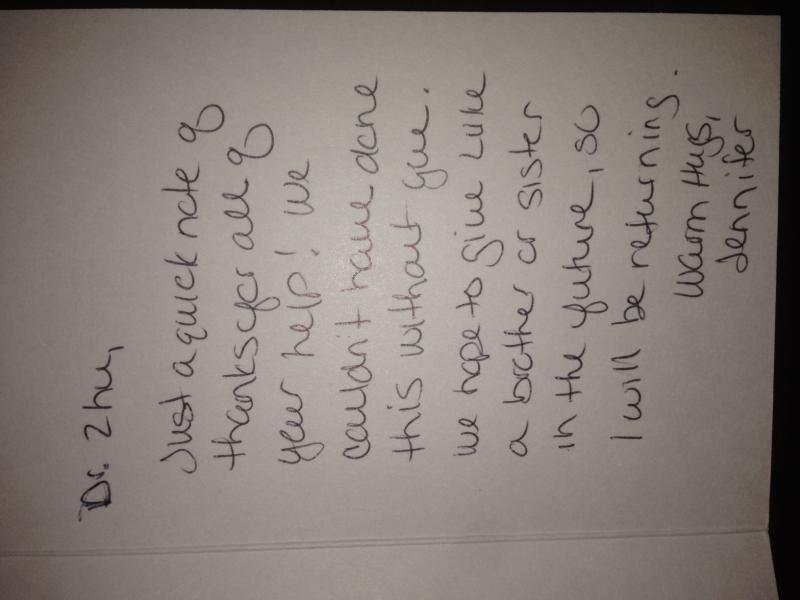 Dr. Zhu,
Just a quick note of
thanks for all of
your help! We
couldn't have done
this without you.
We hope to give Luke
a brother or sister
in the future, so
I will be returning.
Warm Hugs,
Jennifer